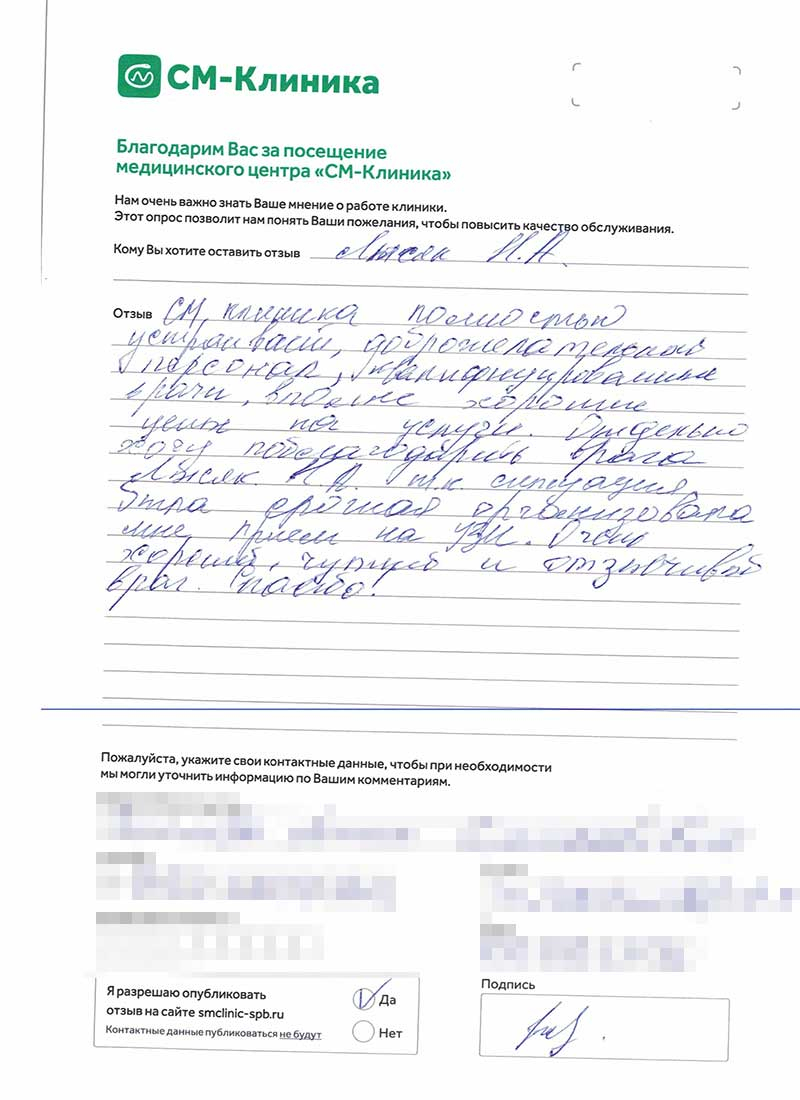 СМ-Клиника
Благодарим Вас за посещение
медицинского центра «СМ-Клиника»
Нам очень важно знать Ваше мнение о работе клиники.
Этот опрос позволит нам понять Ваши пожелания, чтобы повысить качество обслуживания.
Кому Вы хотите оставить отзыв Лысяк Н.А.
Отзыв СМ. клиника полностью
устраивает, доброжелательный
персонал, квалифицированные
врачи, вполне хорошие
цены на услуги. Отдельно
хочу поблагодарить врача
Лысяк Н.А. т.к. ситуация
была срочная организовала
мне прием на УЗИ. Очень
хороший, чуткий и отзывчивый
врач. Спасибо!
Пожалуйста, укажите свои контактные данные, чтобы при необходимости
мы могли уточнить информацию по Вашим комментариям.
Я разрешаю опубликовать
отзыв на сайте smclinic-spb.ru
Контактные данные публиковаться не будут
Да
Нет
Подпись